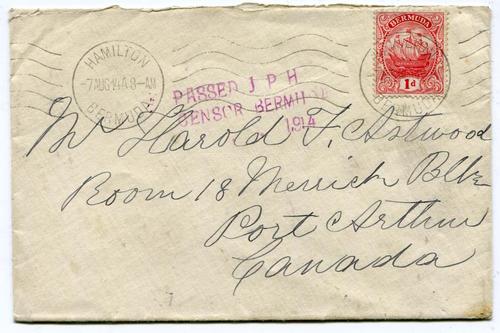 HAMILTON
7 AUG 14 8-AM
BERMUDA
BERMUDA
1d
PASSED J P H
CENSOR BERMUDA
1914
Mr Harold F. Astwood
Room 18 Merrick Blk
Port Arthur
Canada